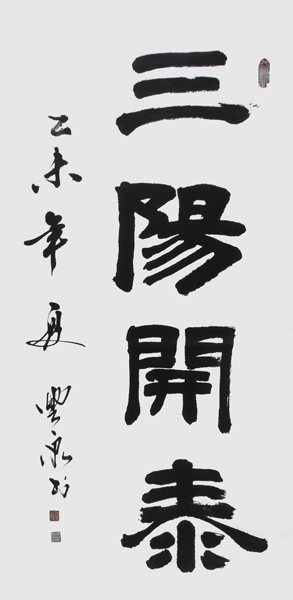 三陽開泰
乙未年夏